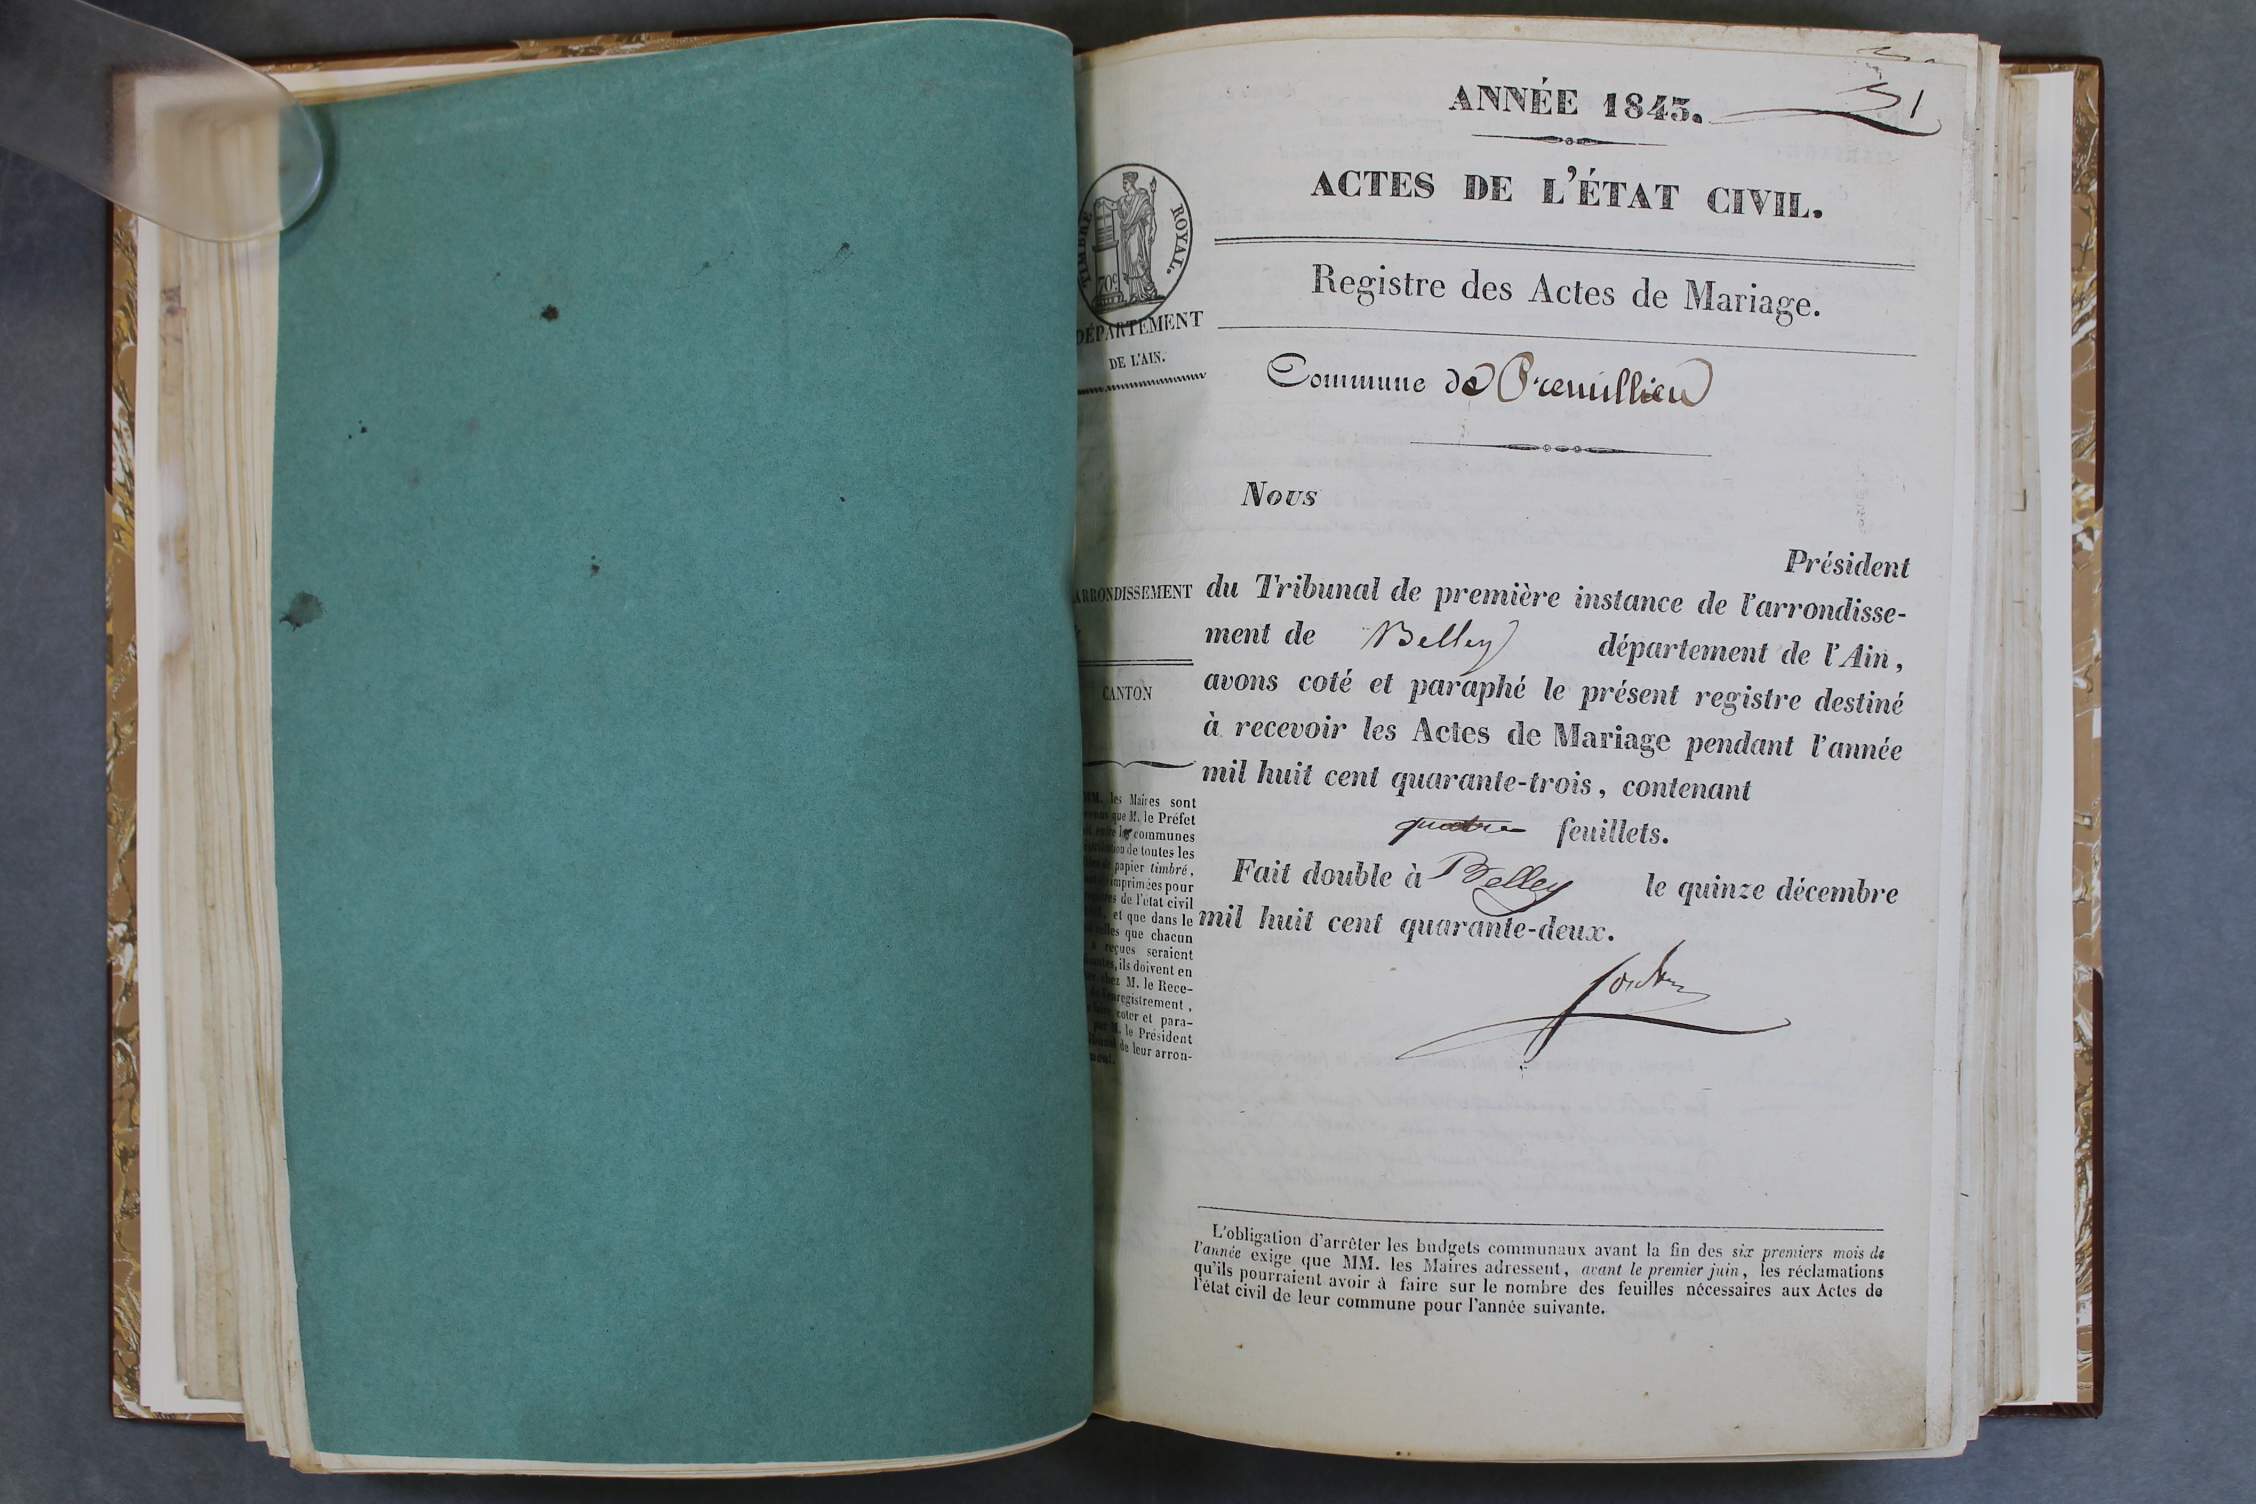 ANNÉE 1843.
1
ACTES DE L'ÉTAT CIVIL.
TIMBRE ROYAL.
70c
DÉPARTEMENT
DE L'AIN.
Registre des Actes de Mariage.
Commune de Premillieu
Nous
Président
ARRONDISSEMENT
du Tribunal de première instance de l'arrondisse-
ment de Belley département de l'Ain,
CANTON
avons coté et paraphé le présent registre destiné
à recevoir les Actes de Mariage pendant l'année
mil huit cent quarante-trois, contenant
quatre feuillets.
Fait double à Belley le quinze décembre
mil huit cent quarante-deux.
MM. les Maires sont
que M. le Préfet
communes
de toutes les
papier timbré,
imprimées pour
de l'état civil
et que dans le
que chacun
reçues seraient
ils doivent en
chez M. le Rece-
enregistrement,
coter et para-
le Président
de leur arron-
L'obligation d'arrêter les budgets communaux avant la fin des six premiers mois de
l'année exige que MM. les Maires adressent, avant le premier juin, les réclamations
qu'ils pourraient avoir à faire sur le nombre des feuilles nécessaires aux Actes de
l'état civil de leur commune pour l'année suivante.